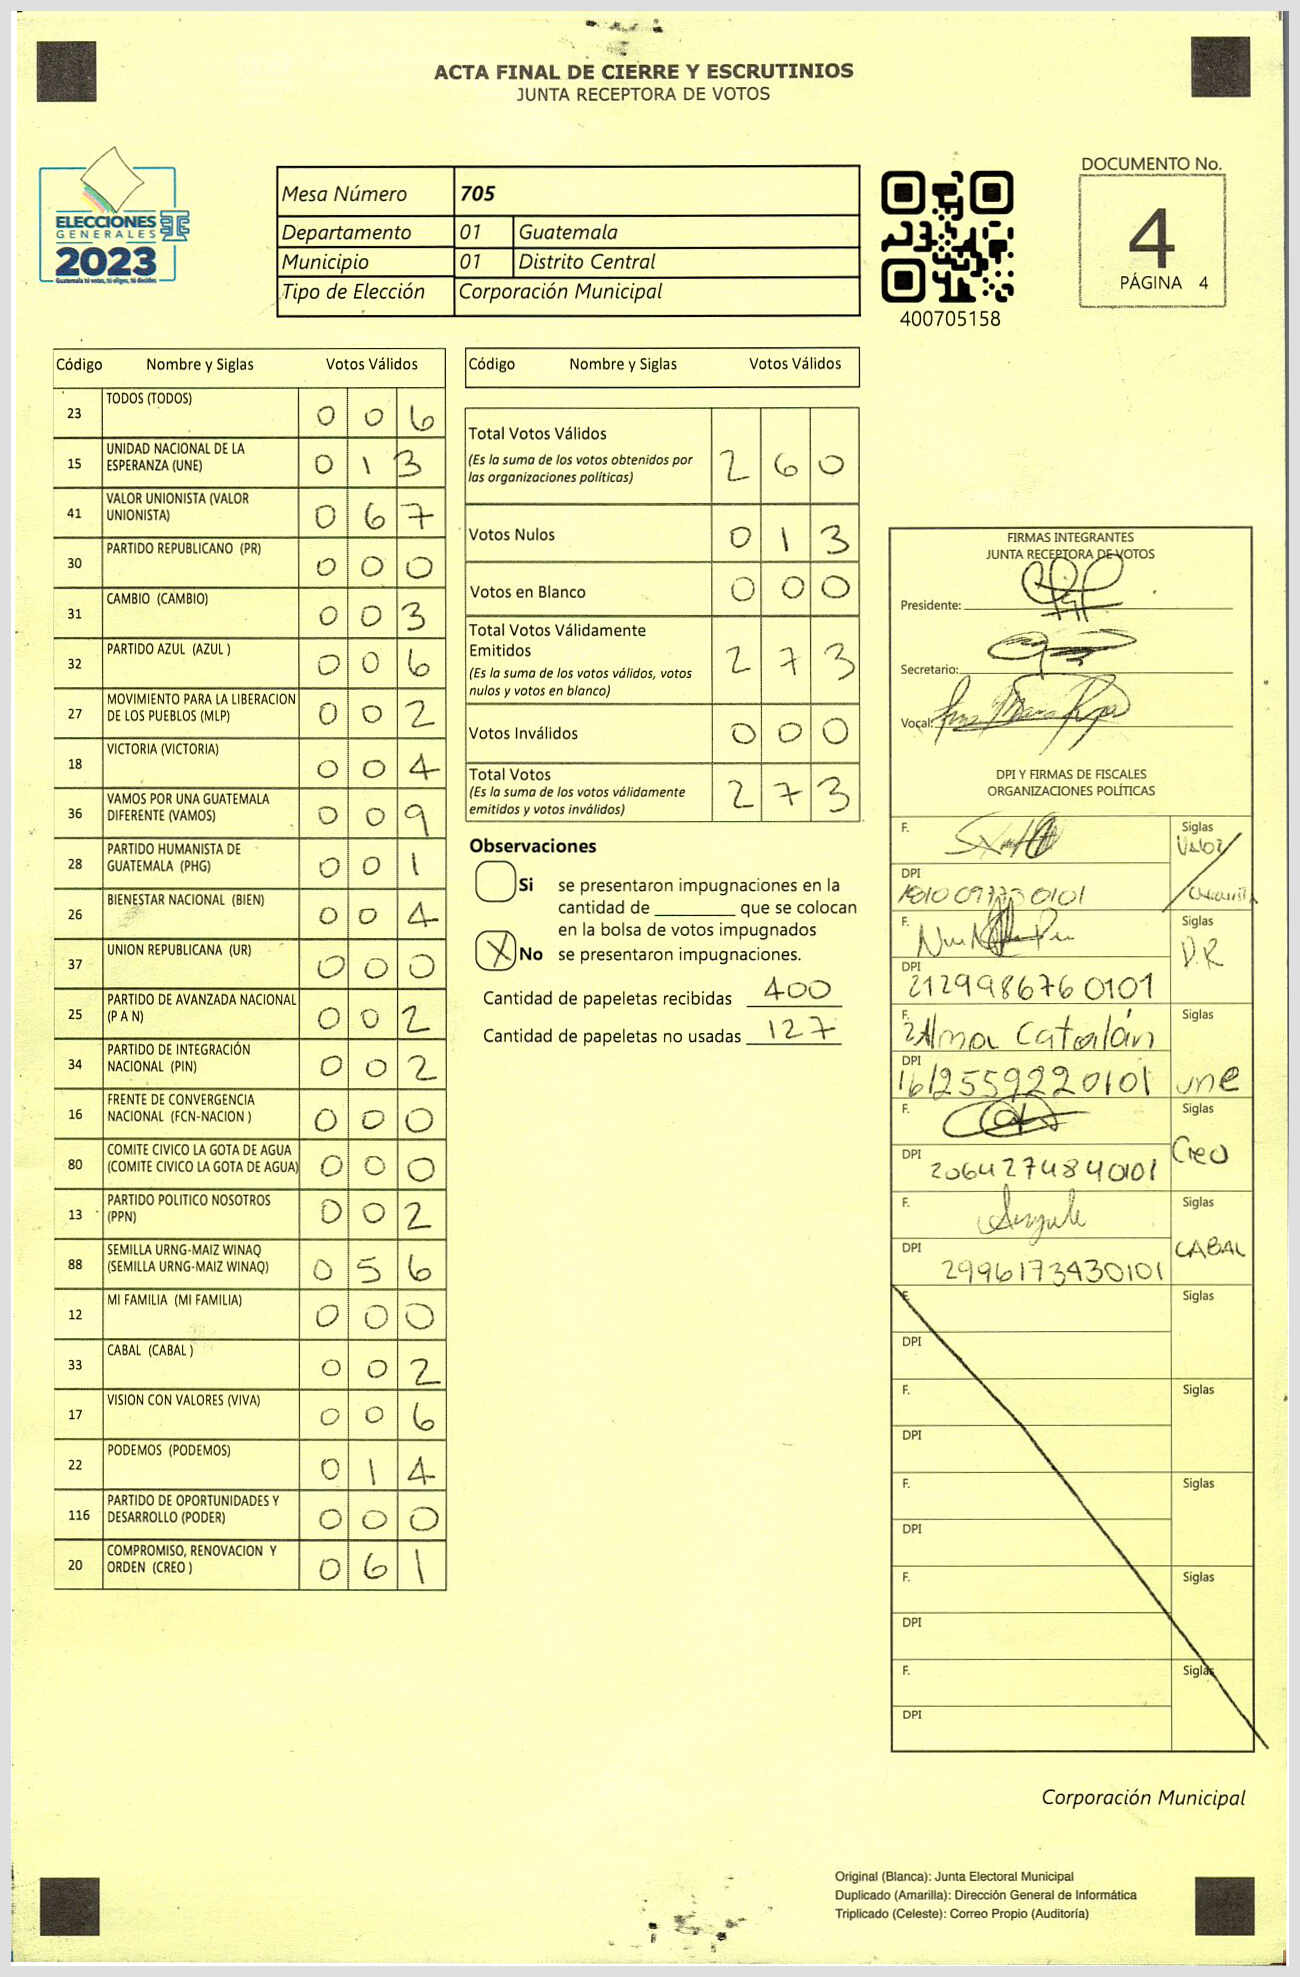 ACTA FINAL DE CIERRE Y ESCRUTINIOS
JUNTA RECEPTORA DE VOTOS
ELECCIONES
GENERALES
2023
Guatemala tú votas, tú eliges, tú decides
Mesa Número 705
Departamento 01 Guatemala
Municipio 01 Distrito Central
Tipo de Elección Corporación Municipal
400705158
DOCUMENTO No.
4
PÁGINA 4
Código Nombre y Siglas Votos Válidos
23 TODOS (TODOS) 0 0 6
15 UNIDAD NACIONAL DE LA
ESPERANZA (UNE) 0 1 3
41 VALOR UNIONISTA (VALOR
UNIONISTA) 0 6 7
30 PARTIDO REPUBLICANO (PR) 0 0 0
31 CAMBIO (CAMBIO) 0 0 3
32 PARTIDO AZUL (AZUL ) 0 0 6
27 MOVIMIENTO PARA LA LIBERACION
DE LOS PUEBLOS (MLP) 0 0 2
18 VICTORIA (VICTORIA) 0 0 4
36 VAMOS POR UNA GUATEMALA
DIFERENTE (VAMOS) 0 0 9
28 PARTIDO HUMANISTA DE
GUATEMALA (PHG) 0 0 1
26 BIENESTAR NACIONAL (BIEN) 0 0 4
37 UNION REPUBLICANA (UR) 0 0 0
25 PARTIDO DE AVANZADA NACIONAL
(P A N) 0 0 2
34 PARTIDO DE INTEGRACIÓN
NACIONAL (PIN) 0 0 2
16 FRENTE DE CONVERGENCIA
NACIONAL (FCN-NACION ) 0 0 0
80 COMITE CIVICO LA GOTA DE AGUA
(COMITE CIVICO LA GOTA DE AGUA) 0 0 0
13 PARTIDO POLITICO NOSOTROS
(PPN) 0 0 2
88 SEMILLA URNG-MAIZ WINAQ
(SEMILLA URNG-MAIZ WINAQ) 0 5 6
12 MI FAMILIA (MI FAMILIA) 0 0 0
33 CABAL (CABAL ) 0 0 2
17 VISION CON VALORES (VIVA) 0 0 6
22 PODEMOS (PODEMOS) 0 1 4
116 PARTIDO DE OPORTUNIDADES Y
DESARROLLO (PODER) 0 0 0
20 COMPROMISO, RENOVACION Y
ORDEN (CREO ) 0 6 1
Código Nombre y Siglas Votos Válidos
Total Votos Válidos
(Es la suma de los votos obtenidos por
las organizaciones políticas) 2 6 0
Votos Nulos 0 1 3
Votos en Blanco 0 0 0
Total Votos Válidamente
Emitidos
(Es la suma de los votos válidos, votos
nulos y votos en blanco) 2 7 3
Votos Inválidos 0 0 0
Total Votos
(Es la suma de los votos válidamente
emitidos y votos inválidos) 2 7 3
Observaciones
Si se presentaron impugnaciones en la
cantidad de ________ que se colocan
en la bolsa de votos impugnados
X No se presentaron impugnaciones.
Cantidad de papeletas recibidas 400
Cantidad de papeletas no usadas 127
FIRMAS INTEGRANTES
JUNTA RECEPTORA DE VOTOS
Presidente:
Secretario:
Vocal:
DPI Y FIRMAS DE FISCALES
ORGANIZACIONES POLÍTICAS
F. Siglas
Valor
DPI
F. Siglas
DPI 2129986760101
F. Alma Catalán Siglas
DPI 1612559220101 une
F. Siglas
DPI 2064274840101 Creo
F. Siglas
DPI 2996173430101 CABAL
F. Siglas
DPI
F. Siglas
DPI
F. Siglas
DPI
F. Siglas
DPI
F. Siglas
DPI
Corporación Municipal
Original (Blanca): Junta Electoral Municipal
Duplicado (Amarilla): Dirección General de Informática
Triplicado (Celeste): Correo Propio (Auditoría)